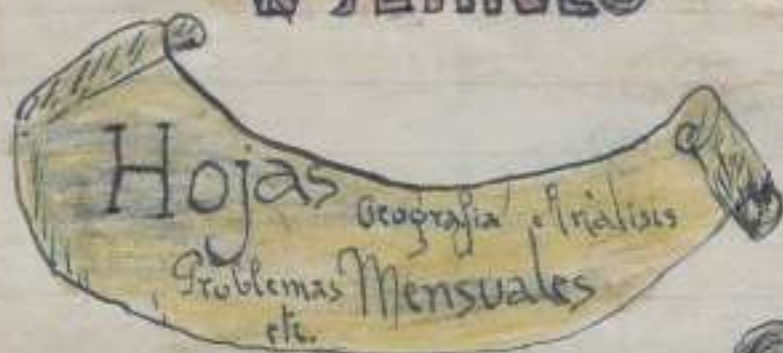 Hojas
Geografía Análisis
Problemas Mensuales
etc.